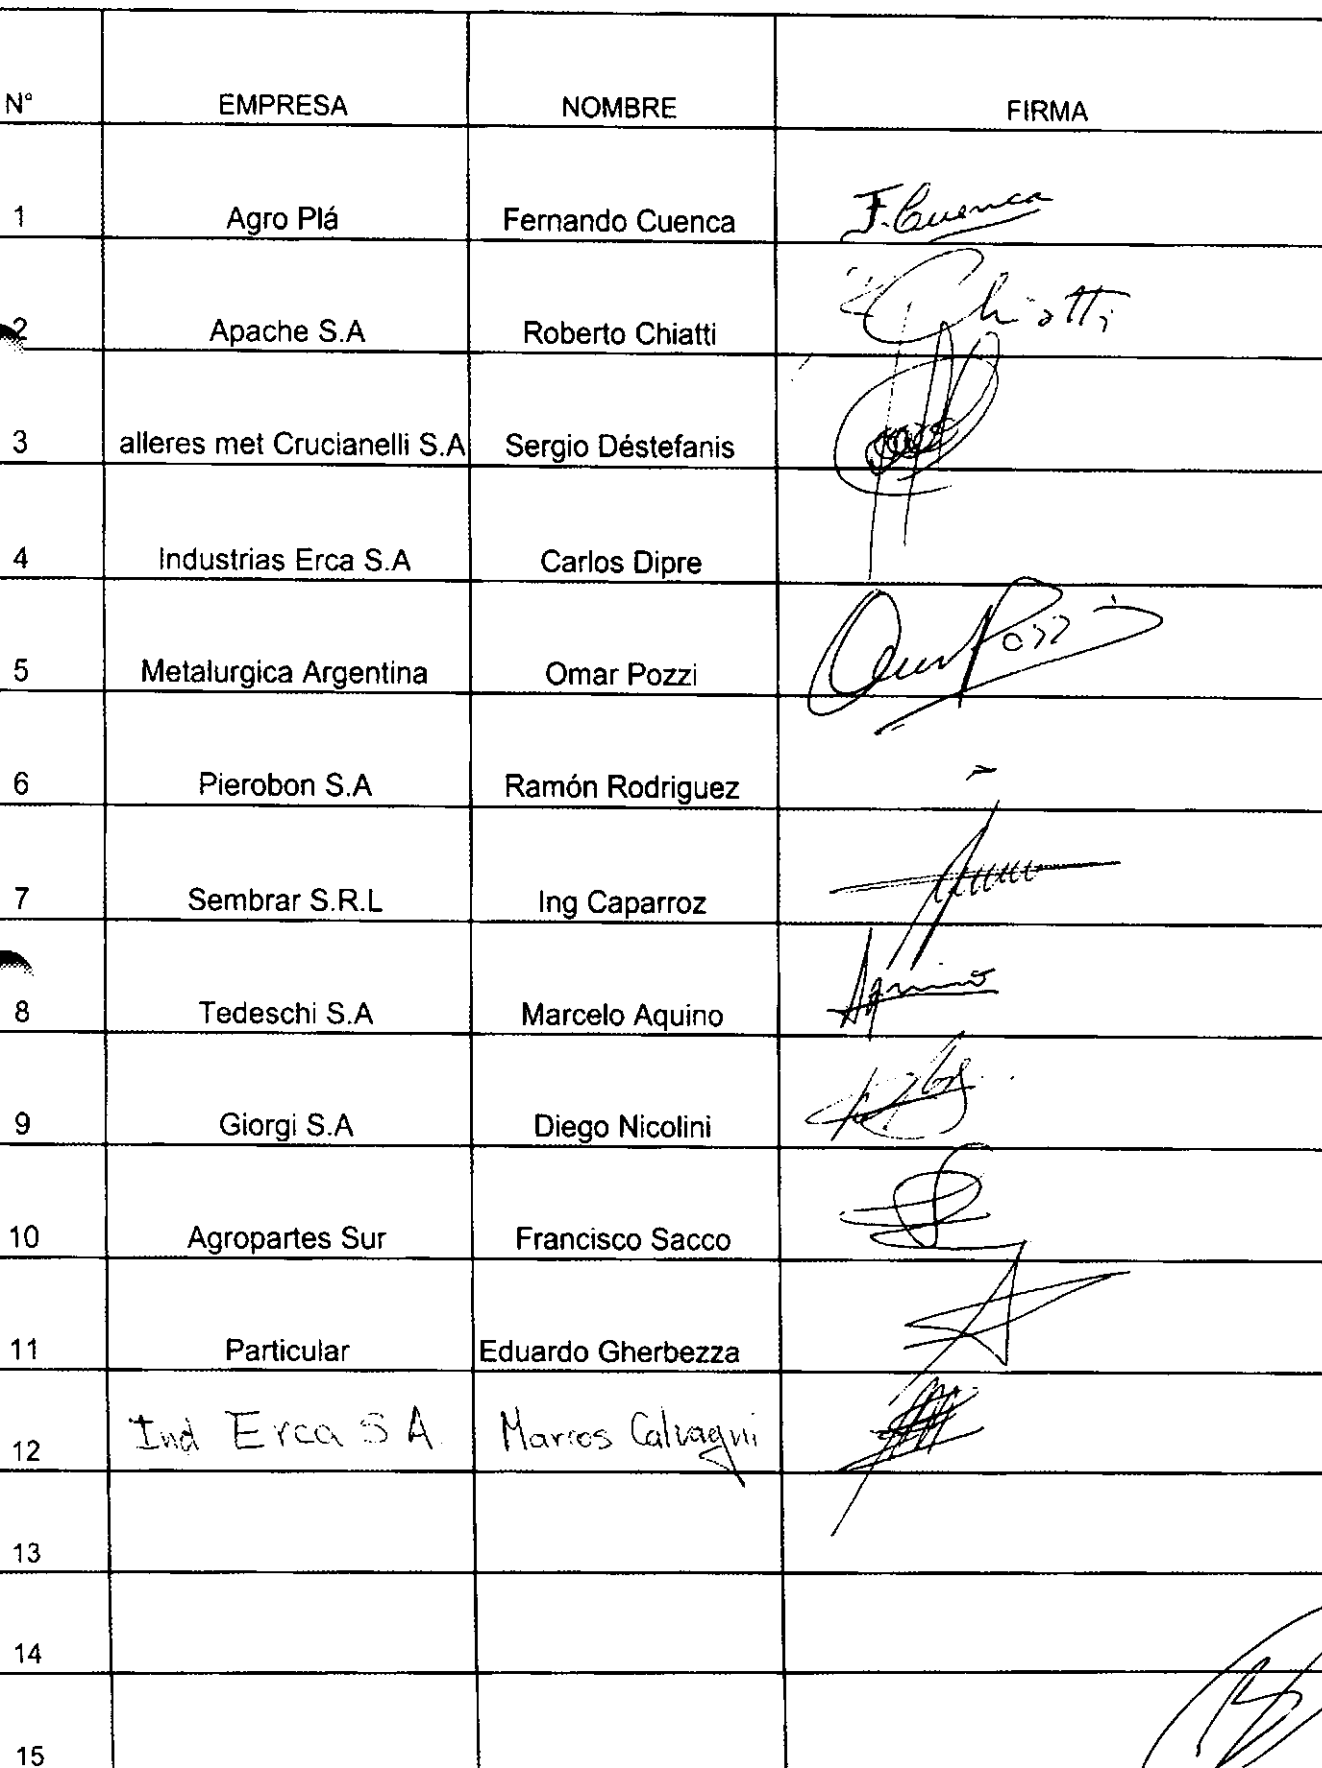 N° EMPRESA NOMBRE FIRMA
1 Agro Plá Fernando Cuenca F. Cuenca
2 Apache S.A Roberto Chiatti Chiatti
3 alleres met Crucianelli S.A Sergio Déstefanis
4 Industrias Erca S.A Carlos Dipre
5 Metalurgica Argentina Omar Pozzi Omar Pozzi
6 Pierobon S.A Ramón Rodriguez
7 Sembrar S.R.L Ing Caparroz
8 Tedeschi S.A Marcelo Aquino Aquino
9 Giorgi S.A Diego Nicolini
10 Agropartes Sur Francisco Sacco
11 Particular Eduardo Gherbezza
12 Ind Erca S A Marcos
13
14
15